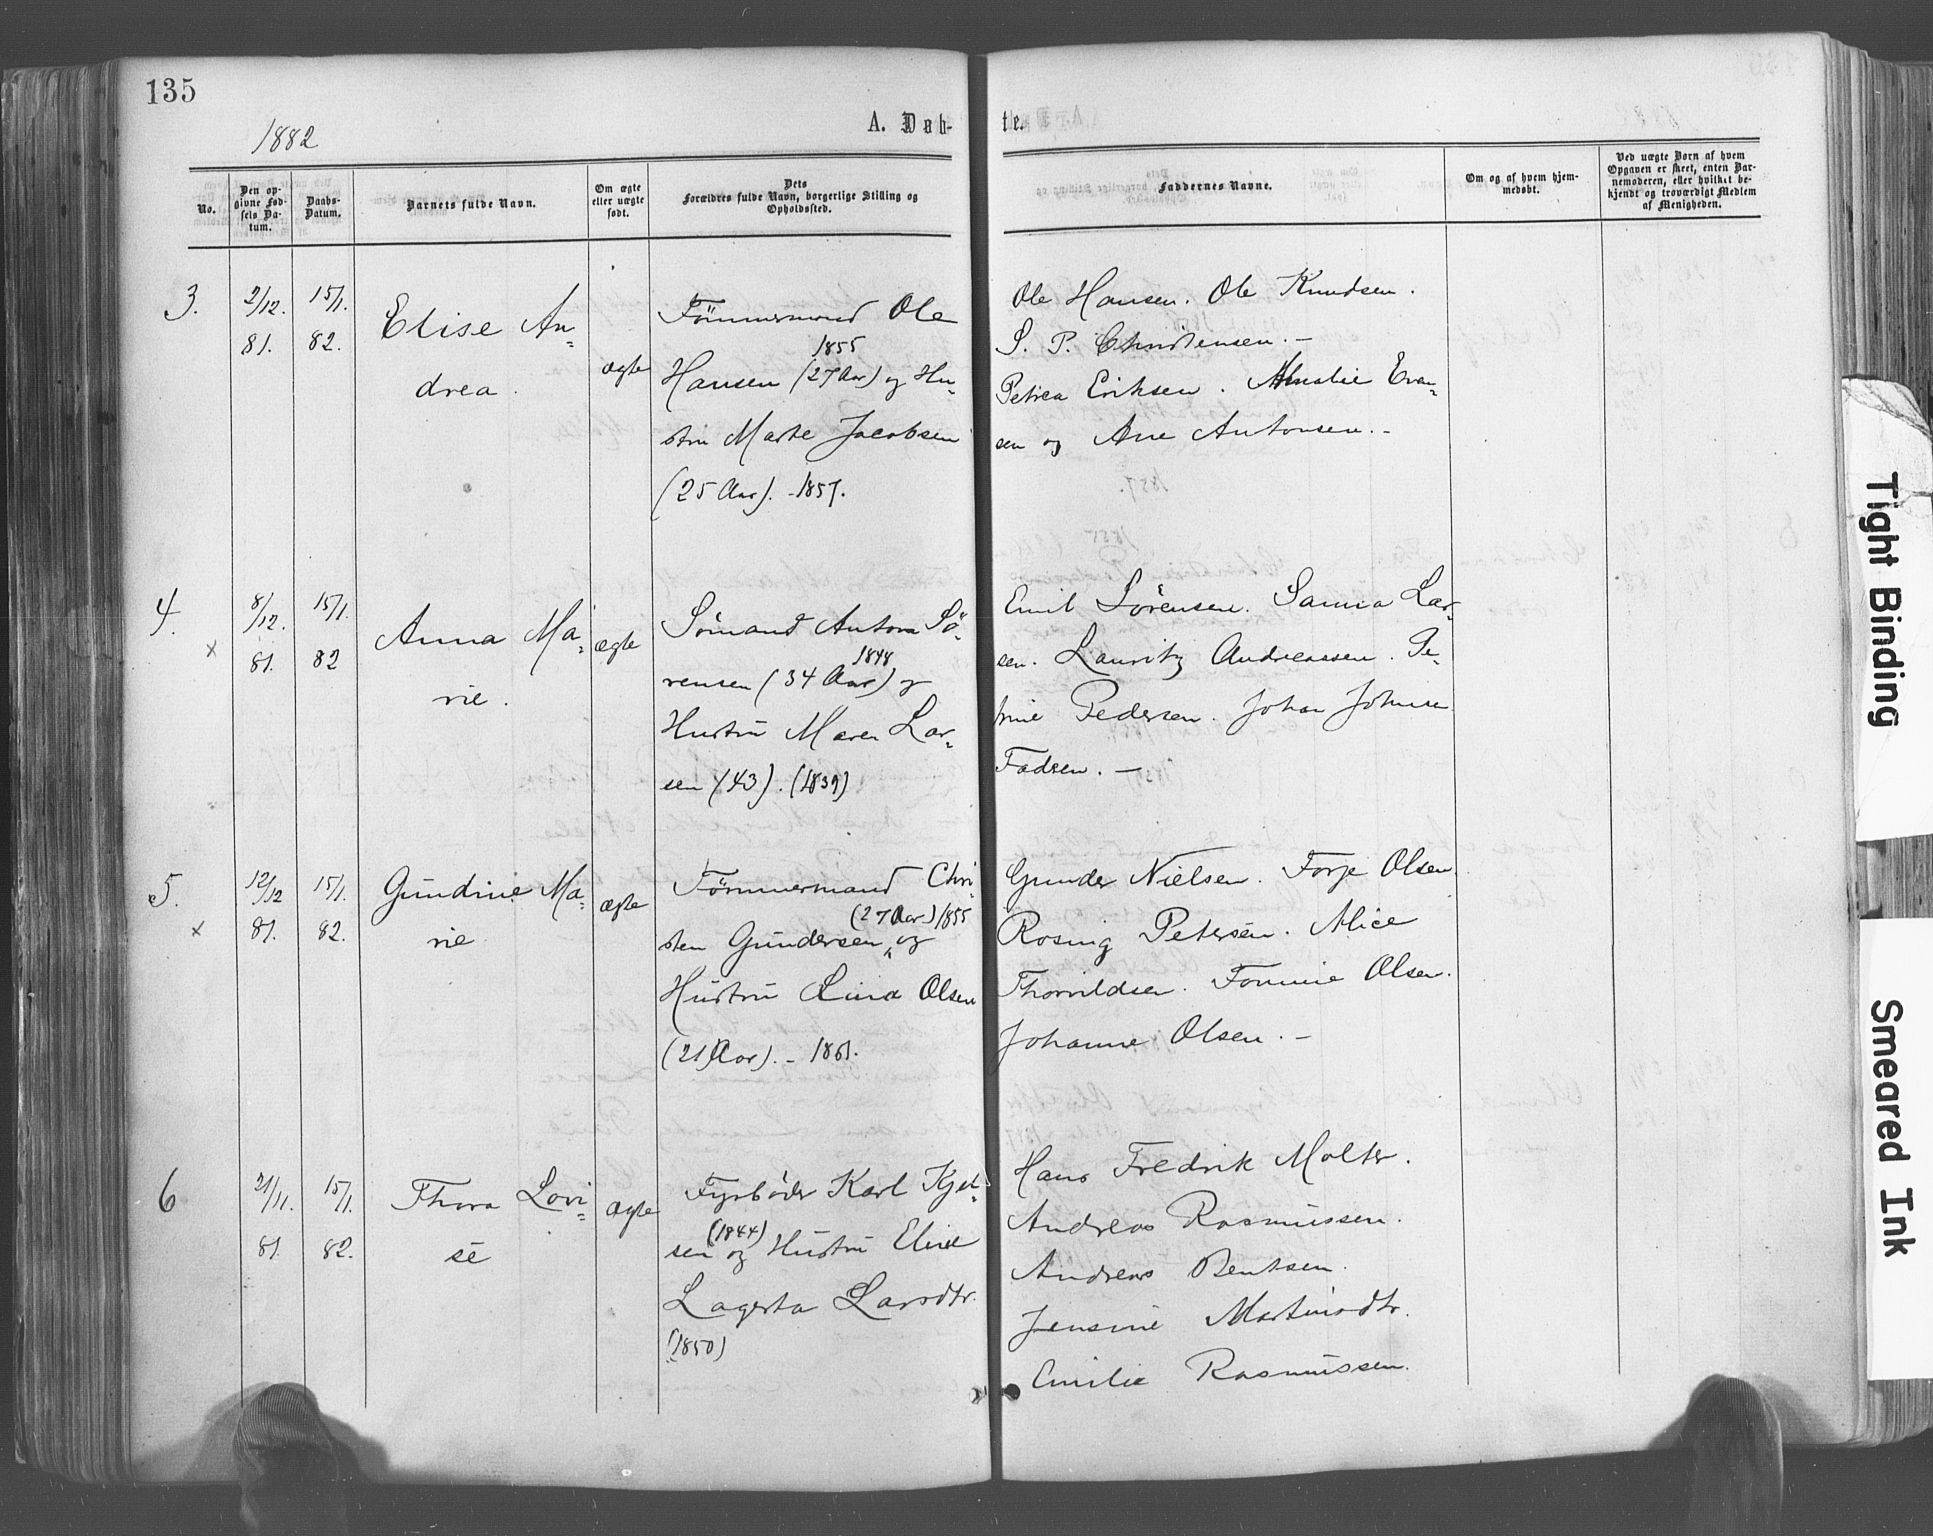 135
1882
A. Døb-
te.
No.
Den op-
givne Fød-
sels Da-
tum.
Daabs-
Datum.
Barnets fulde Navn.
Om ægte
eller uægte
født.
Dets
Forældres fulde Navn, borgerlige Stilling og
Opholdssted.
Faddernes Navne.
Om og af hvem hjem-
medøbt.
Ved uægte Børn af hvem
Opgaven er skeet, enten Bar-
nemoderen, eller hvilket be-
kjendt og troværdigt Medlem
af Menigheden.
3.
2/12.
81.
15/1.
82.
Elise An=
drea.
ægte
Tömmermand Ole
1855
Hansen (27 Aar) og Hu=
stru Marte Jacobsen
(25 Aar). - 1857.
Ole Hansen. Ole Knudsen.
S. P. Christensen. -
Petrea Eriksen. Amalie Evan=
sen og Ane Antonsen. -
4.
x
8/12.
81.
15/1.
82
Anna Ma=
rie.
ægte
Sömand Anton Sö=
1848
rensen (34 Aar) og
Hustru Maren Lar=
sen (43). (1839)
Emil Sörensen. Sanna Lar=
sen. Lauritz Andreassen. Pe=
trine Pedersen. Johan Johnsen
Fadsen. -
5.
x
12/12
81.
15/1.
82.
Gundine Ma=
rie
ægte
Tömmermand Chri=
(27 Aar) 1855
sten Gundersen og
Hustru Lina Olsen
(21 Aar). - 1861.
Gunder Nielsen. Torje Olsen.
Rosing Petersen. Alice
Thorvildsen. Tomine Olsen.
Johanne Olsen. -
6
21/11.
81.
15/1.
82.
Thora Lovi=
se
Ægte
Fyrböder Karl Kjel=
(1844)
sen og Hustru Eline
Lagerta Larsdtr.
(1850)
Hans Fredrik Molter.
Andreas Rasmussen.
Andreas Bentsen.
Jensine Martinsdtr.
Emilie Rasmussen.
Tight Binding
Smeared Ink